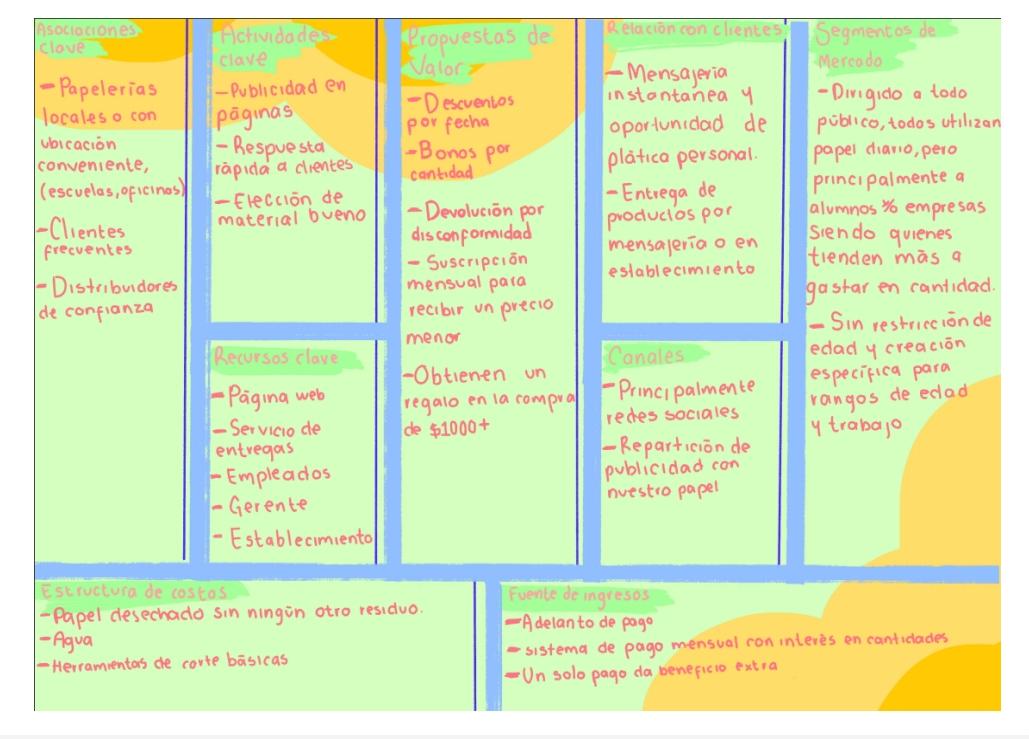 Asociaciones
clave
- Papelerías
locales o con
ubicación
conveniente,
(escuelas, oficinas)
- Clientes
frecuentes
- Distribuidores
de confianza
Actividades
clave
- Publicidad en
páginas
- Respuesta
rápida a clientes
- Elección de
material bueno
Recursos clave
- Página web
- Servicio de
entregas
- Empleados
- Gerente
- Establecimiento
Propuestas de
Valor
- Descuentos
por fecha
- Bonos por
cantidad
- Devolución por
disconformidad
- Suscripción
mensual para
recibir un precio
menor
- Obtienen un
regalo en la compra
de $1000+
Relación con clientes
- Mensajería
instantanea y
oportunidad de
plática personal.
- Entrega de
productos por
mensajería o en
establecimiento
Canales
- Principalmente
redes sociales
- Repartición de
publicidad con
nuestro papel
Segmentos de
Mercado
- Dirigido a todo
público, todos utilizan
papel diario, pero
principalmente a
alumnos % empresas
siendo quienes
tienden más a
gastar en cantidad.
- Sin restricción de
edad y creación
específica para
rangos de edad
y trabajo
Estructura de costos
- Papel desechado sin ningún otro residuo.
- Agua
- Herramientas de corte básicas
Fuente de ingresos
- Adelanto de pago
- sistema de pago mensual con interés en cantidades
- Un solo pago da beneficio extra